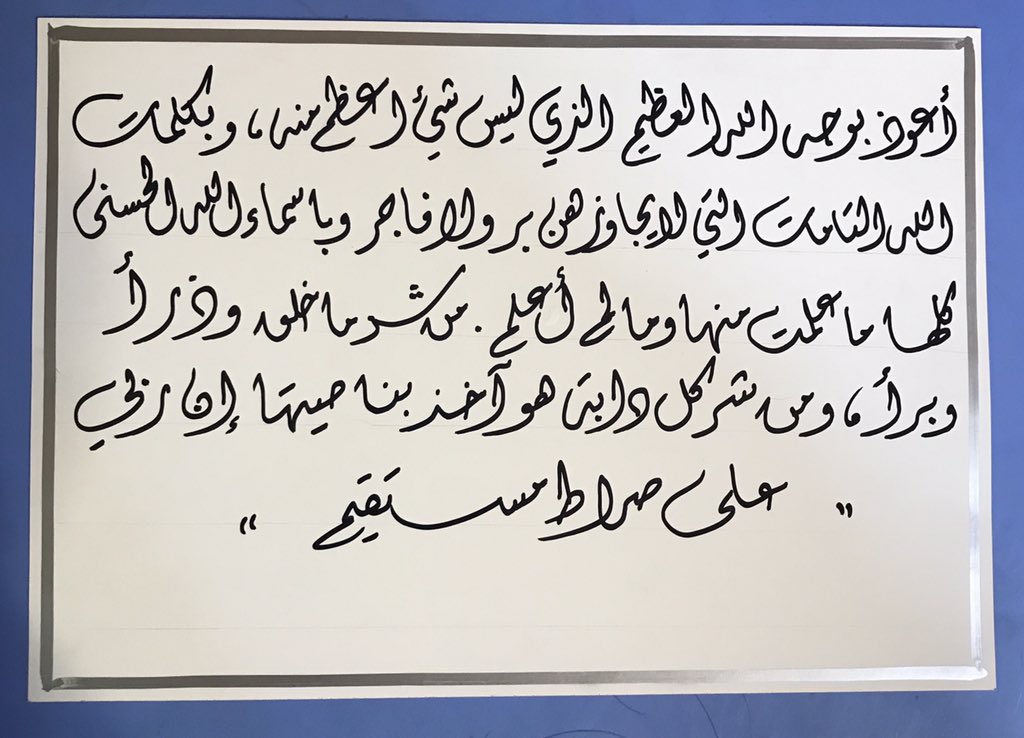 أعوذ بوجه الله العظيم الذي ليس شئ اعظم منه ، وبكلمات
الله التامات التي لا يجاوزهن بر ولا فاجر وباسماء الله الحسنى
كلها ما علمت منها وما لم أعلم . من شر ما خلق وذرأ
وبرأ ، ومن شر كل دابة هو آخذ بناصيتها إن ربي
" على صراط مستقيم "